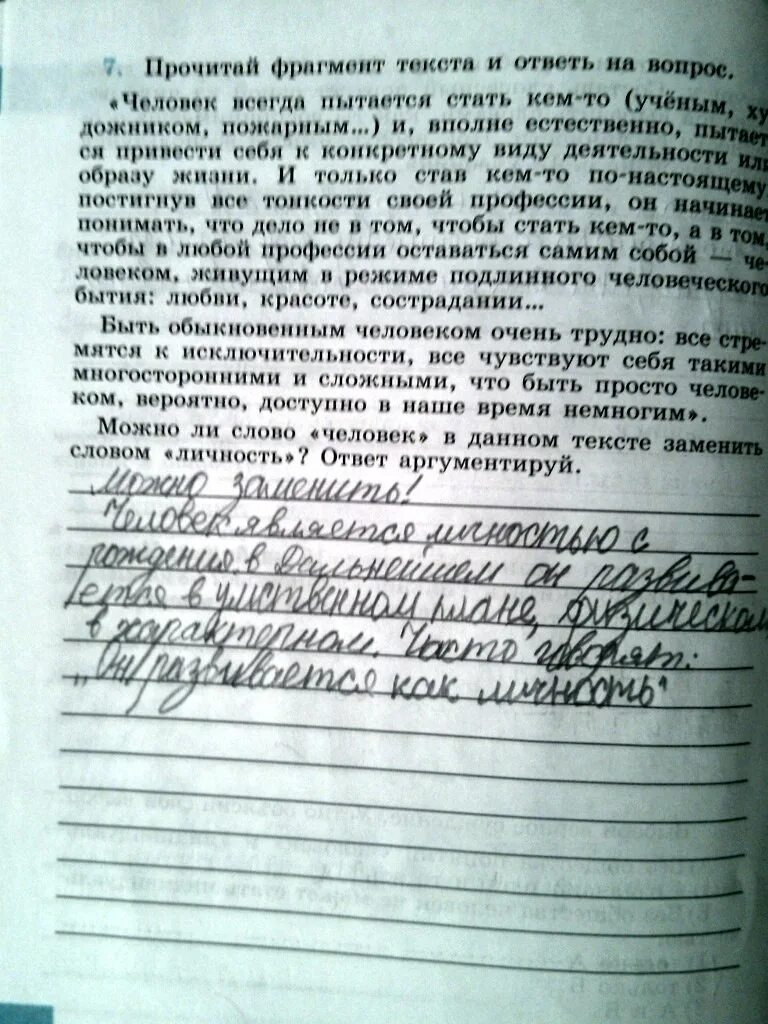 7. Прочитай фрагмент текста и ответь на вопрос.
«Человек всегда пытается стать кем-то (учёным, ху
дожником, пожарным...) и, вполне естественно, пытает
ся привести себя к конкретному виду деятельности или
образу жизни. И только став кем-то по-настоящему
постигнув все тонкости своей профессии, он начинает
понимать, что дело не в том, чтобы стать кем-то, а в том,
чтобы в любой профессии оставаться самим собой — че-
ловеком, живущим в режиме подлинного человеческого
бытия: любви, красоте, сострадании...
Быть обыкновенным человеком очень трудно: все стре-
мятся к исключительности, все чувствуют себя такими
многосторонними и сложными, что быть просто челове-
ком, вероятно, доступно в наше время немногим».
Можно ли слово «человек» в данном тексте заменить
словом «личность»? Ответ аргументируй.
Можно заменить!
Человек является личностью с
рождения, в Дальнейшем он развива-
ется в умственном плане, физическом
в характерном. Часто говорят:
„Он развивается как личность"